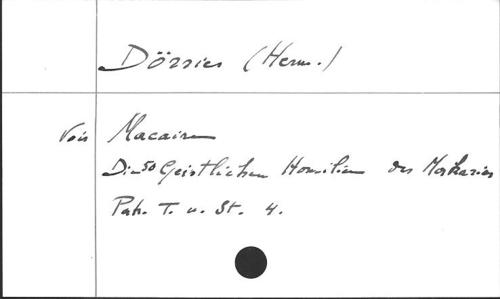 Dörries (Herm.)
Voir Macaire
Die 50 Geistlichen Homilien des Makarios
Patr. T. u. St. 4.